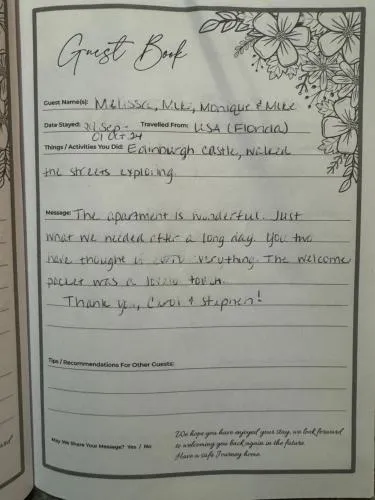 Guest Book
Guest Name(s): Melissa, Mike, Monique & Mike
Date Stayed: Sep - 01 Oct 24 Travelled From: USA (Florida)
Things / Activities You Did: Edinburgh castle, walked
the streets exploring.
Message: The apartment is wonderful. Just
what we needed after a long day. You two
have thought everything. The welcome
packet was a lovely touch.
Thank you, Carol & Stephen!
Tips / Recommendations For Other Guests:
May We Share Your Message? Yes / No
We hope you have enjoyed your stay, we look forward
to welcoming you back again in the future.
Have a safe Journey home.